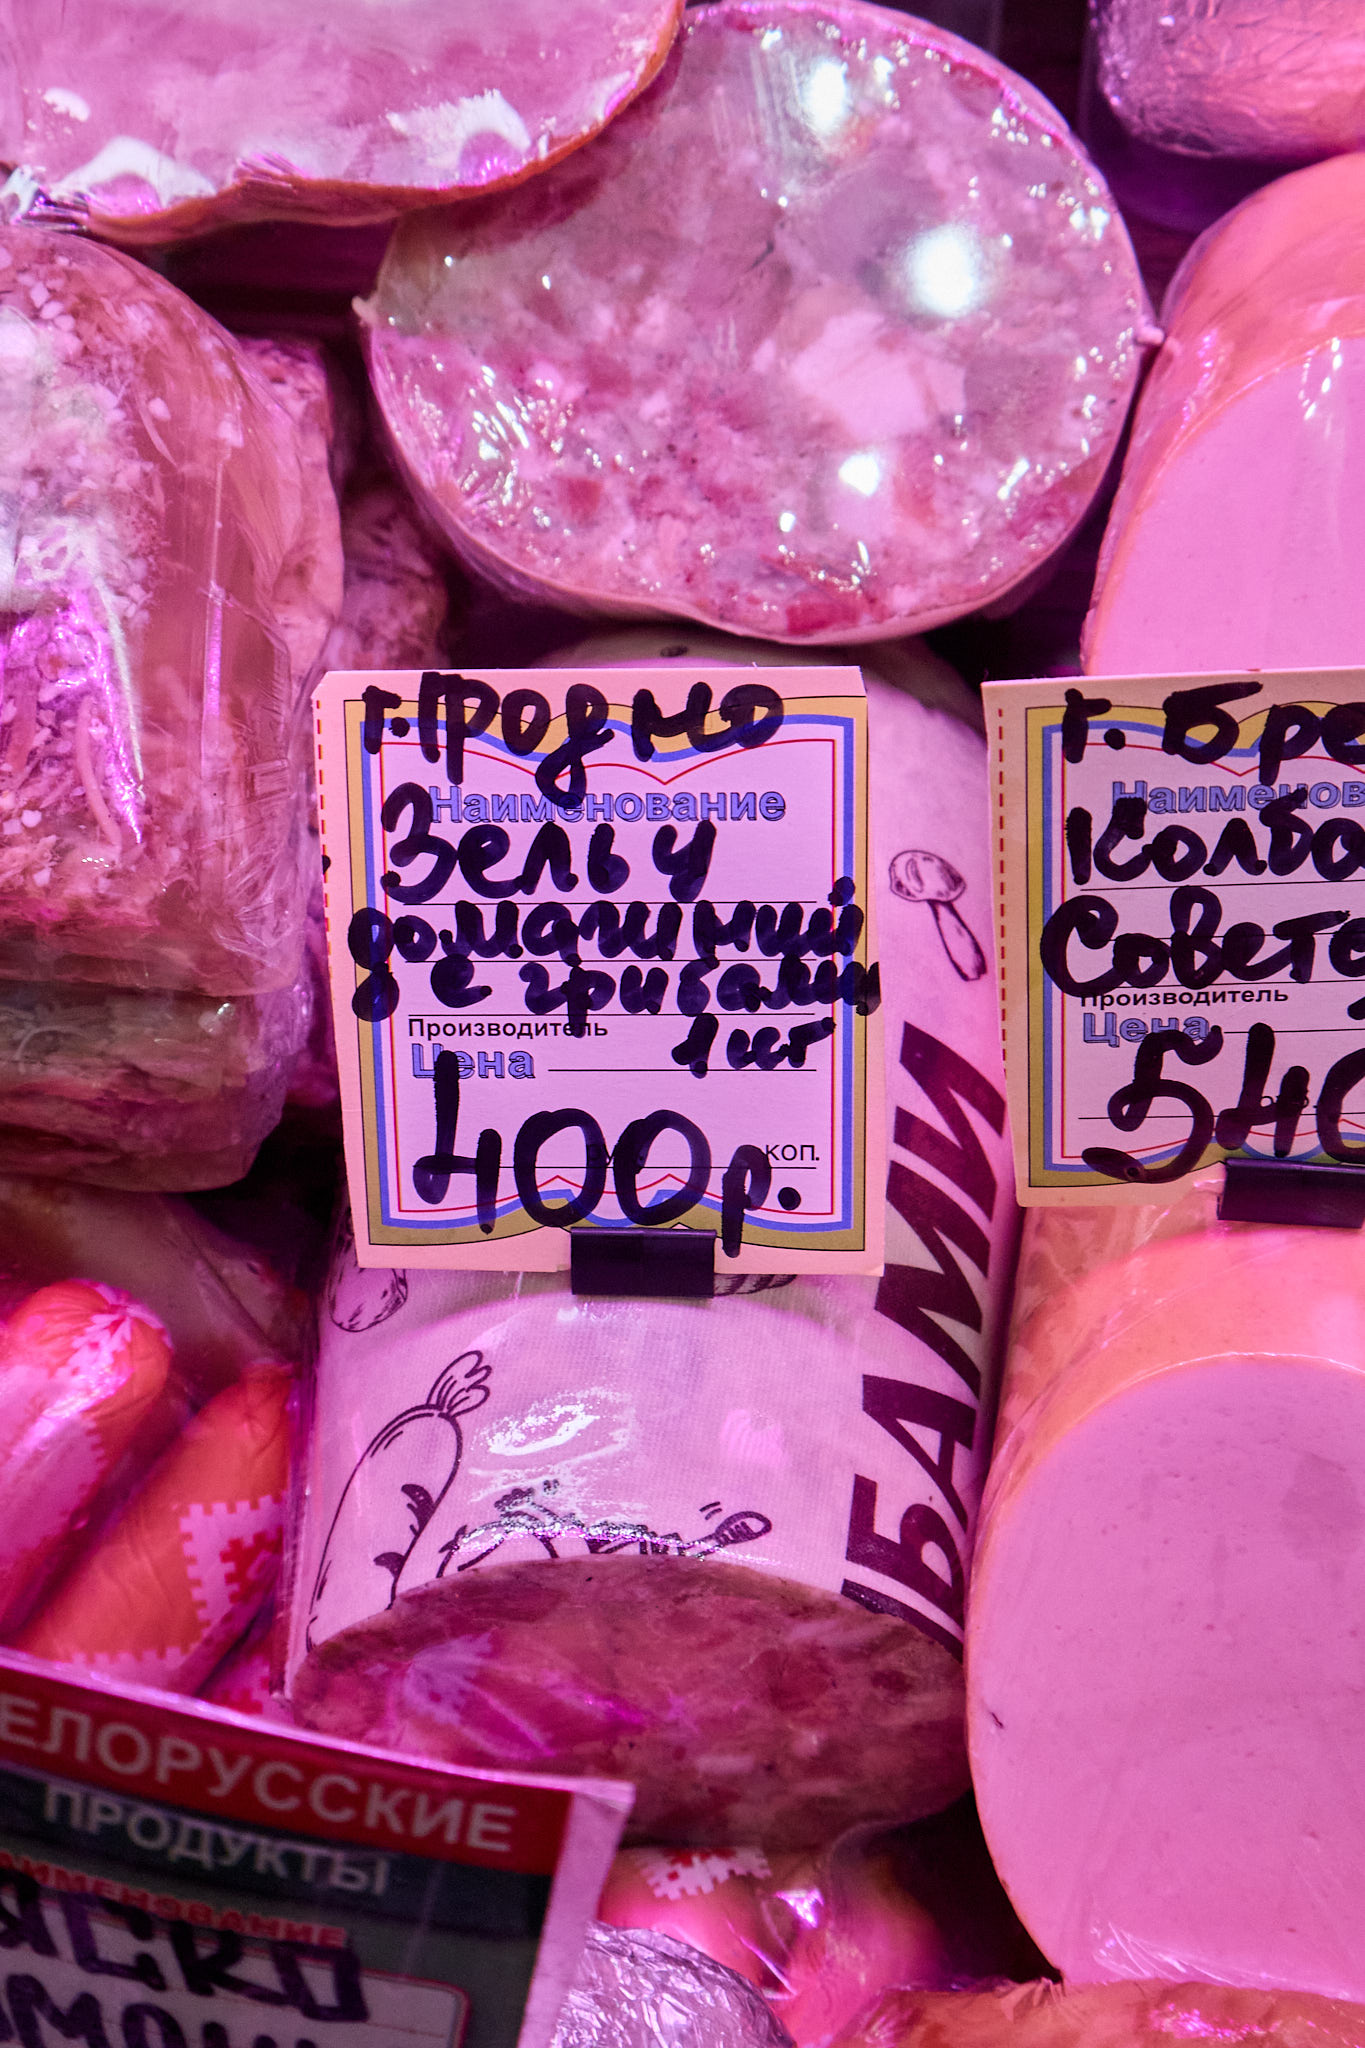 г. Гродно
Наименование
Зельц
домашний
с грибами
Производитель
1 кг
Цена
400 р.
коп.
г. Бре
Наименов
Колба
Советс
Производитель
Цена
540
БАМИ
ЕЛОРУССКИЕ
ПРОДУКТЫ
НАИМЕНОВАНИЕ